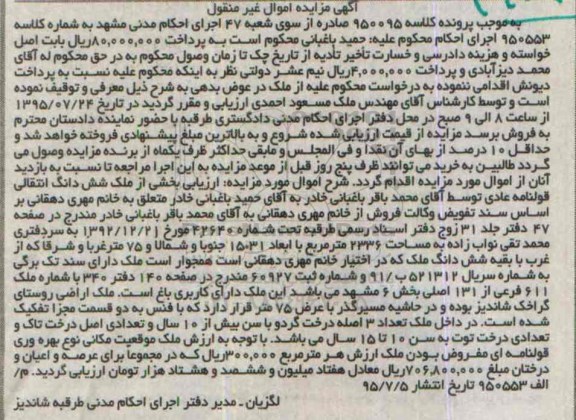 آگهی مزایده اموال غیر منقول
به موجب پرونده کلاسه ۹۵۰۰۹۵ صادره از سوی شعبه ۴۷ اجرای احکام مدنی مشهد به شماره کلاسه
۹۵۰۵۵۳ اجرای احکام محکوم علیه: حمید باغبانی محکوم است به پرداخت ۸۰,۰۰۰,۰۰۰ریال بابت اصل
خواسته و هزینه دادرسی و خسارت تأخیر تأدیه از تاریخ چک تا زمان وصول محکوم به در حق محکوم له آقای
محمد دیزآبادی و پرداخت ۴,۰۰۰,۰۰۰ریال نیم عشر دولتی نظر به اینکه محکوم علیه نسبت به پرداخت
دیونش اقدامی ننموده به درخواست محکوم علیه از ملک در عوض بدهی به شرح ذیل معرفی و توقیف نموده
است و توسط کارشناس آقای مهندس ملک مسعود احمدی ارزیابی و مقرر گردید در تاریخ ۱۳۹۵/۰۷/۲۴
از ساعت ۸ الی ۹ صبح در محل دفتر اجرای احکام مدنی دادگستری طرقبه با حضور نماینده دادستان محترم
به فروش برسد مزایده از قیمت ارزیابی شده شروع و به بالاترین مبلغ پیشنهادی فروخته خواهد شد و
حداقل ۱۰ درصد از بهای آن نقدا و فی المجلس و مابقی حداکثر ظرف یکماه از برنده مزایده وصول می
گردد طالبین به خرید می توانند ظرف پنج روز قبل از موعد مزایده به این اجرا مراجعه تا نسبت به بازدید
آنان از اموال مورد مزایده اقدام گردد. شرح اموال مورد مزایده: ارزیابی بخشی از ملک شش دانگ انتقالی
قولنامه عادی توسط آقای محمد باقر باغبانی خادر به آقای حمید باغبانی خادر متعلق به خانم مهری دهقانی بر
اساس سند تفویض وکالت فروش از خانم مهری دهقانی به آقای محمد باقر باغبانی خادر مندرج در صفحه
۴۷ دفتر جلد ۳۱ زوج دفتر اسناد رسمی طرقبه تحت شماره ۴۲۶۴۰ مورخ ۱۳۹۲/۱۲/۲۱ به سردفتری
محمد تقی نواب زاده به مساحت ۲۳۳۶ مترمربع با ابعاد ۱۵۰۳۱ جنوبا و شمالا و ۷۵ مترغربا و شرقا که از
غرب با بقیه شش دانگ ملک که در اختیار خانم مهری دهقانی است همجوار است ملک دارای سند تک برگی
به شماره سریال ۵۲۱۳۱۲ ب/۹۱ و شماره ثبت ۶۰۹۲۷ مندرج در صفحه ۱۴۰ دفتر ۳۴۰ با شماره ملک
۶۱۱ فرعی از ۱۳۱ اصلی بخش ۶ مشهد می باشد. این ملک دارای کاربری باغ است. ملک اراضی روستای
گراخک شاندیز بوده و در حاشیه مسیر گذر با عرض ۷۵ متر قرار دارد که با فنس به دو قسمت مجزا تفکیک
شده است. در داخل ملک تعداد ۳ اصله درخت گردو با سن بیش از ۱۰ سال و تعدادی اصل درخت تاک و
تعدادی درخت توت به سن ۱۰ تا ۱۵ سال می باشد. با توجه به ارزش ملک موقعیت مکانی نوع بهره وری
قولنامه ای مفروض بودن ملک ارزش هر مترمربع ۳۰۰,۰۰۰ریال که در مجموعا برای عرصه و اعیان و
درختان مبلغ ۷۰۶,۸۰۰,۰۰۰ریال معادل هفتاد میلیون و ششصد و هشتاد هزار تومان ارزیابی گردید. م/
الف ۹۵۰۵۵۳ تاریخ انتشار ۹۵/۷/۵
لگزیان ـ مدیر دفتر اجرای احکام مدنی طرقبه شاندیز